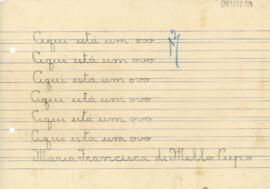 Aqui está um ovo
Aqui está um ovo
Aqui está um ovo
Aqui está um ovo
Aqui está um ovo
Aqui está um ovo
Maria Francisca de Mello Pupo